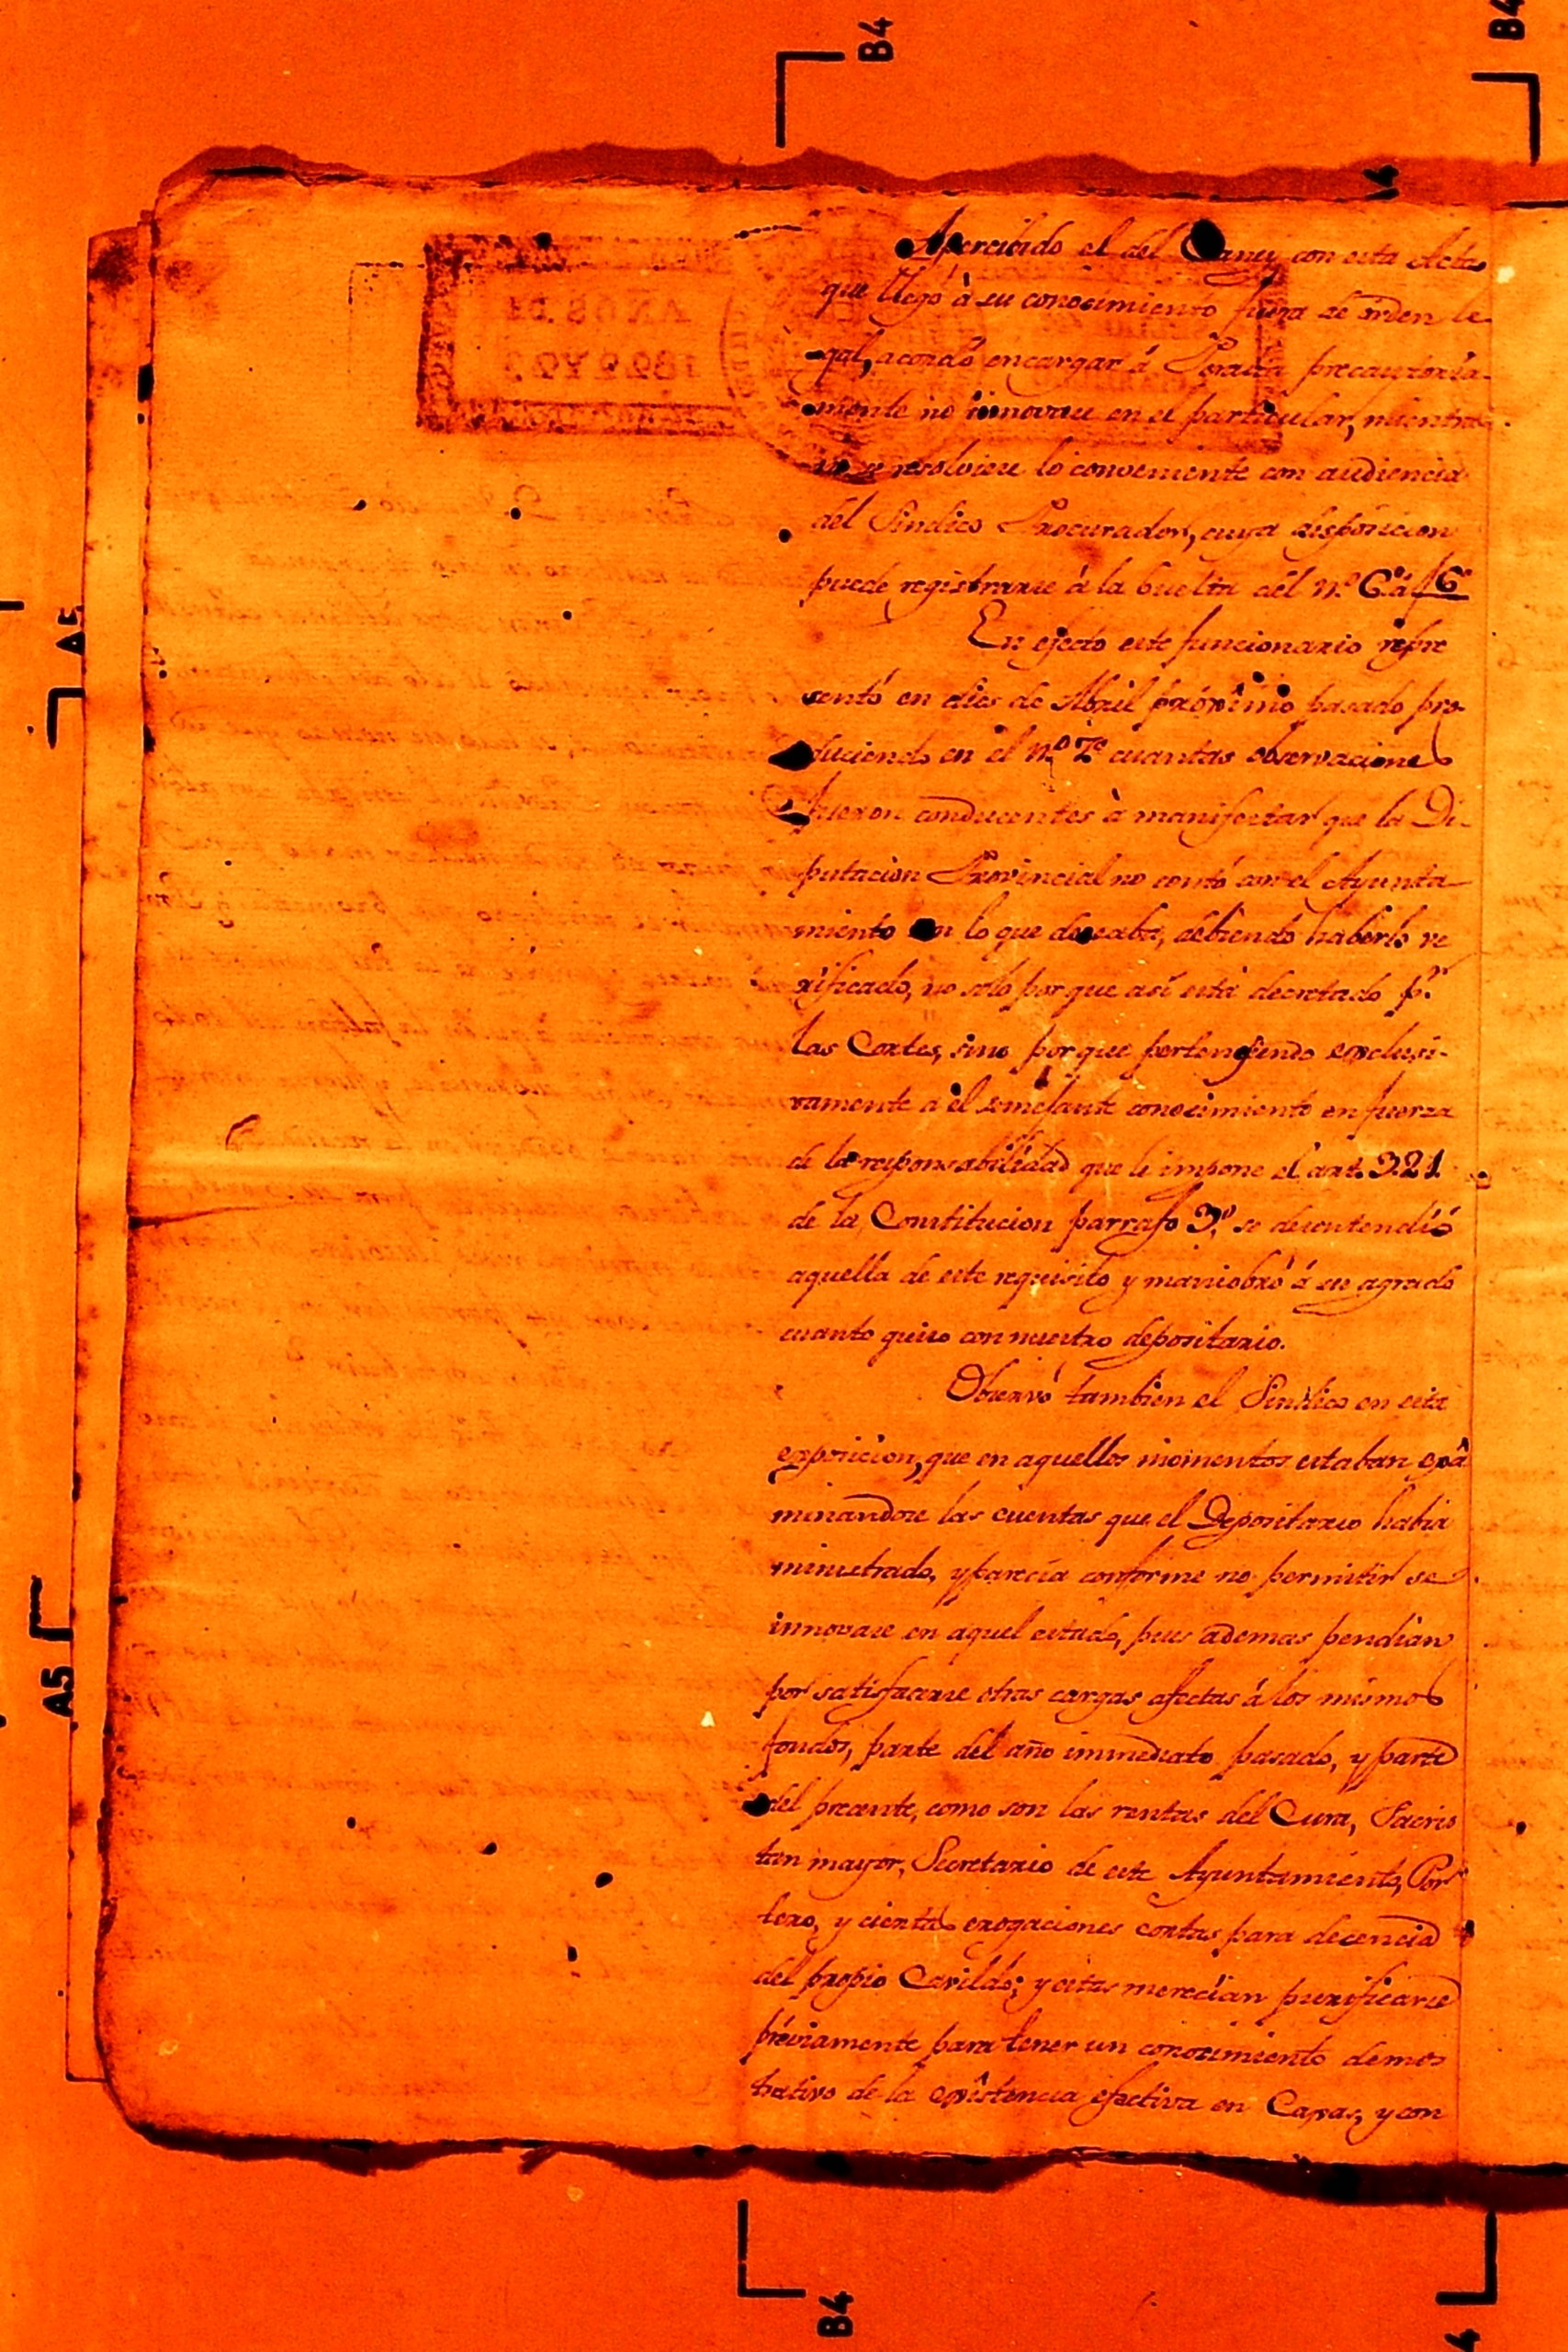 Apercibido el del Caney con esta Acta
que llegó à su conocimiento fuera de orden le
gal, acordó encargar á Peralta precautoria-
mente no innovase en el particular, mientras
no se resolviese lo conveniente con audiencia
del Sindico Procurador, cuya disposicion
puede registrarse à la buelta del n.º 6.º á f 6
En efecto este funcionario repre
sentó en dies de Abril próximo pasado pro-
duciendo en el n.º 7.º cuantas observaciones
fueron conducentes à manifestar que la Di-
putacion Provincial no contó con el Ayunta-
miento en lo que deseaba, debiendo haberlo ve
rificado, no solo porque así está decretado p.r
las Cortes, sino porque perteneciendo exclusi-
vamente a él semejante conocimiento en fuerza
de la responsabilidad que le impone el art. 321
de la Constitucion parrafo 3.º se desentendió
aquella de este requisito y maniobró á su agrado
cuanto quiso con nuestro depositario.
Observó tambien el Sindico en esta
exposicion, que en aquellos momentos estaban exâ
minandose las cuentas que el Depositario habia
ministrado, y parecia conforme no permitir se
innovase en aquel estado, pues ademas pendian
por satisfacerse otras cargas afectas á los mismos
fondos, parte del año inmediato pasado, y parte
del presente, como son las rentas del Cura, Sacris
tan mayor, Secretario de este Ayuntamiento, Por
tero, y ciertas erogaciones cortas para decencia
del propio Cavildo; y estas merecian purificarse
préviamente para tener un conocimiento demos
trativo de la exîstencia efectiva en Caxas, y con